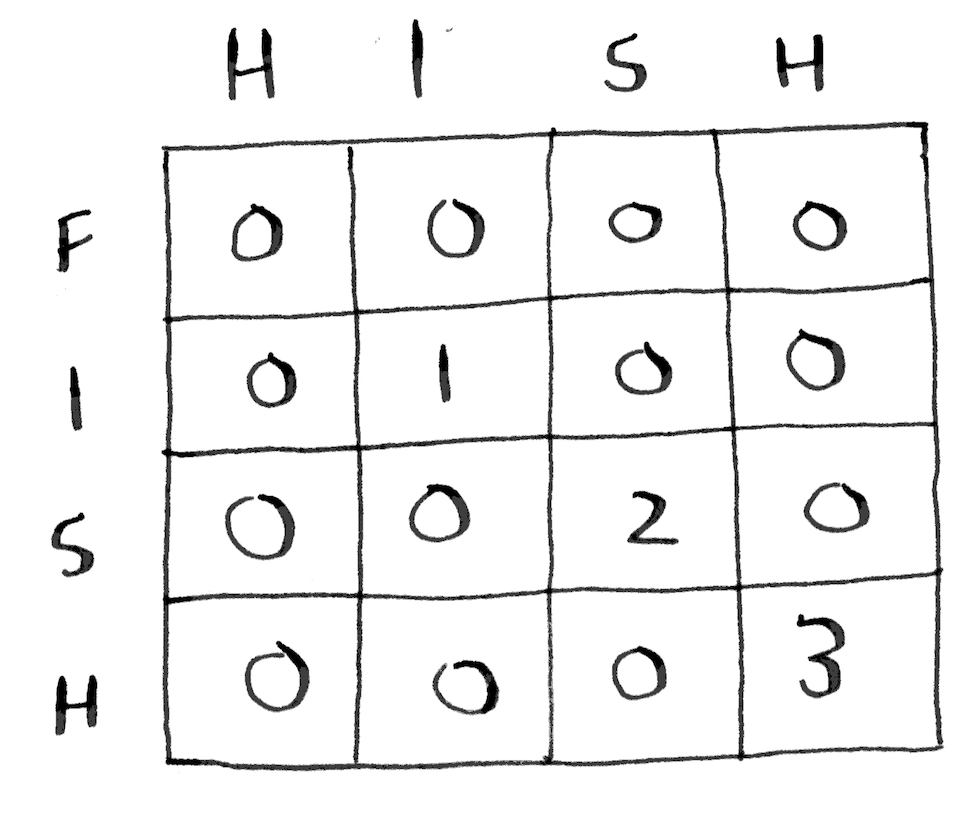 H I S H
F 0 0 0 0
I 0 1 0 0
S 0 0 2 0
H 0 0 0 3